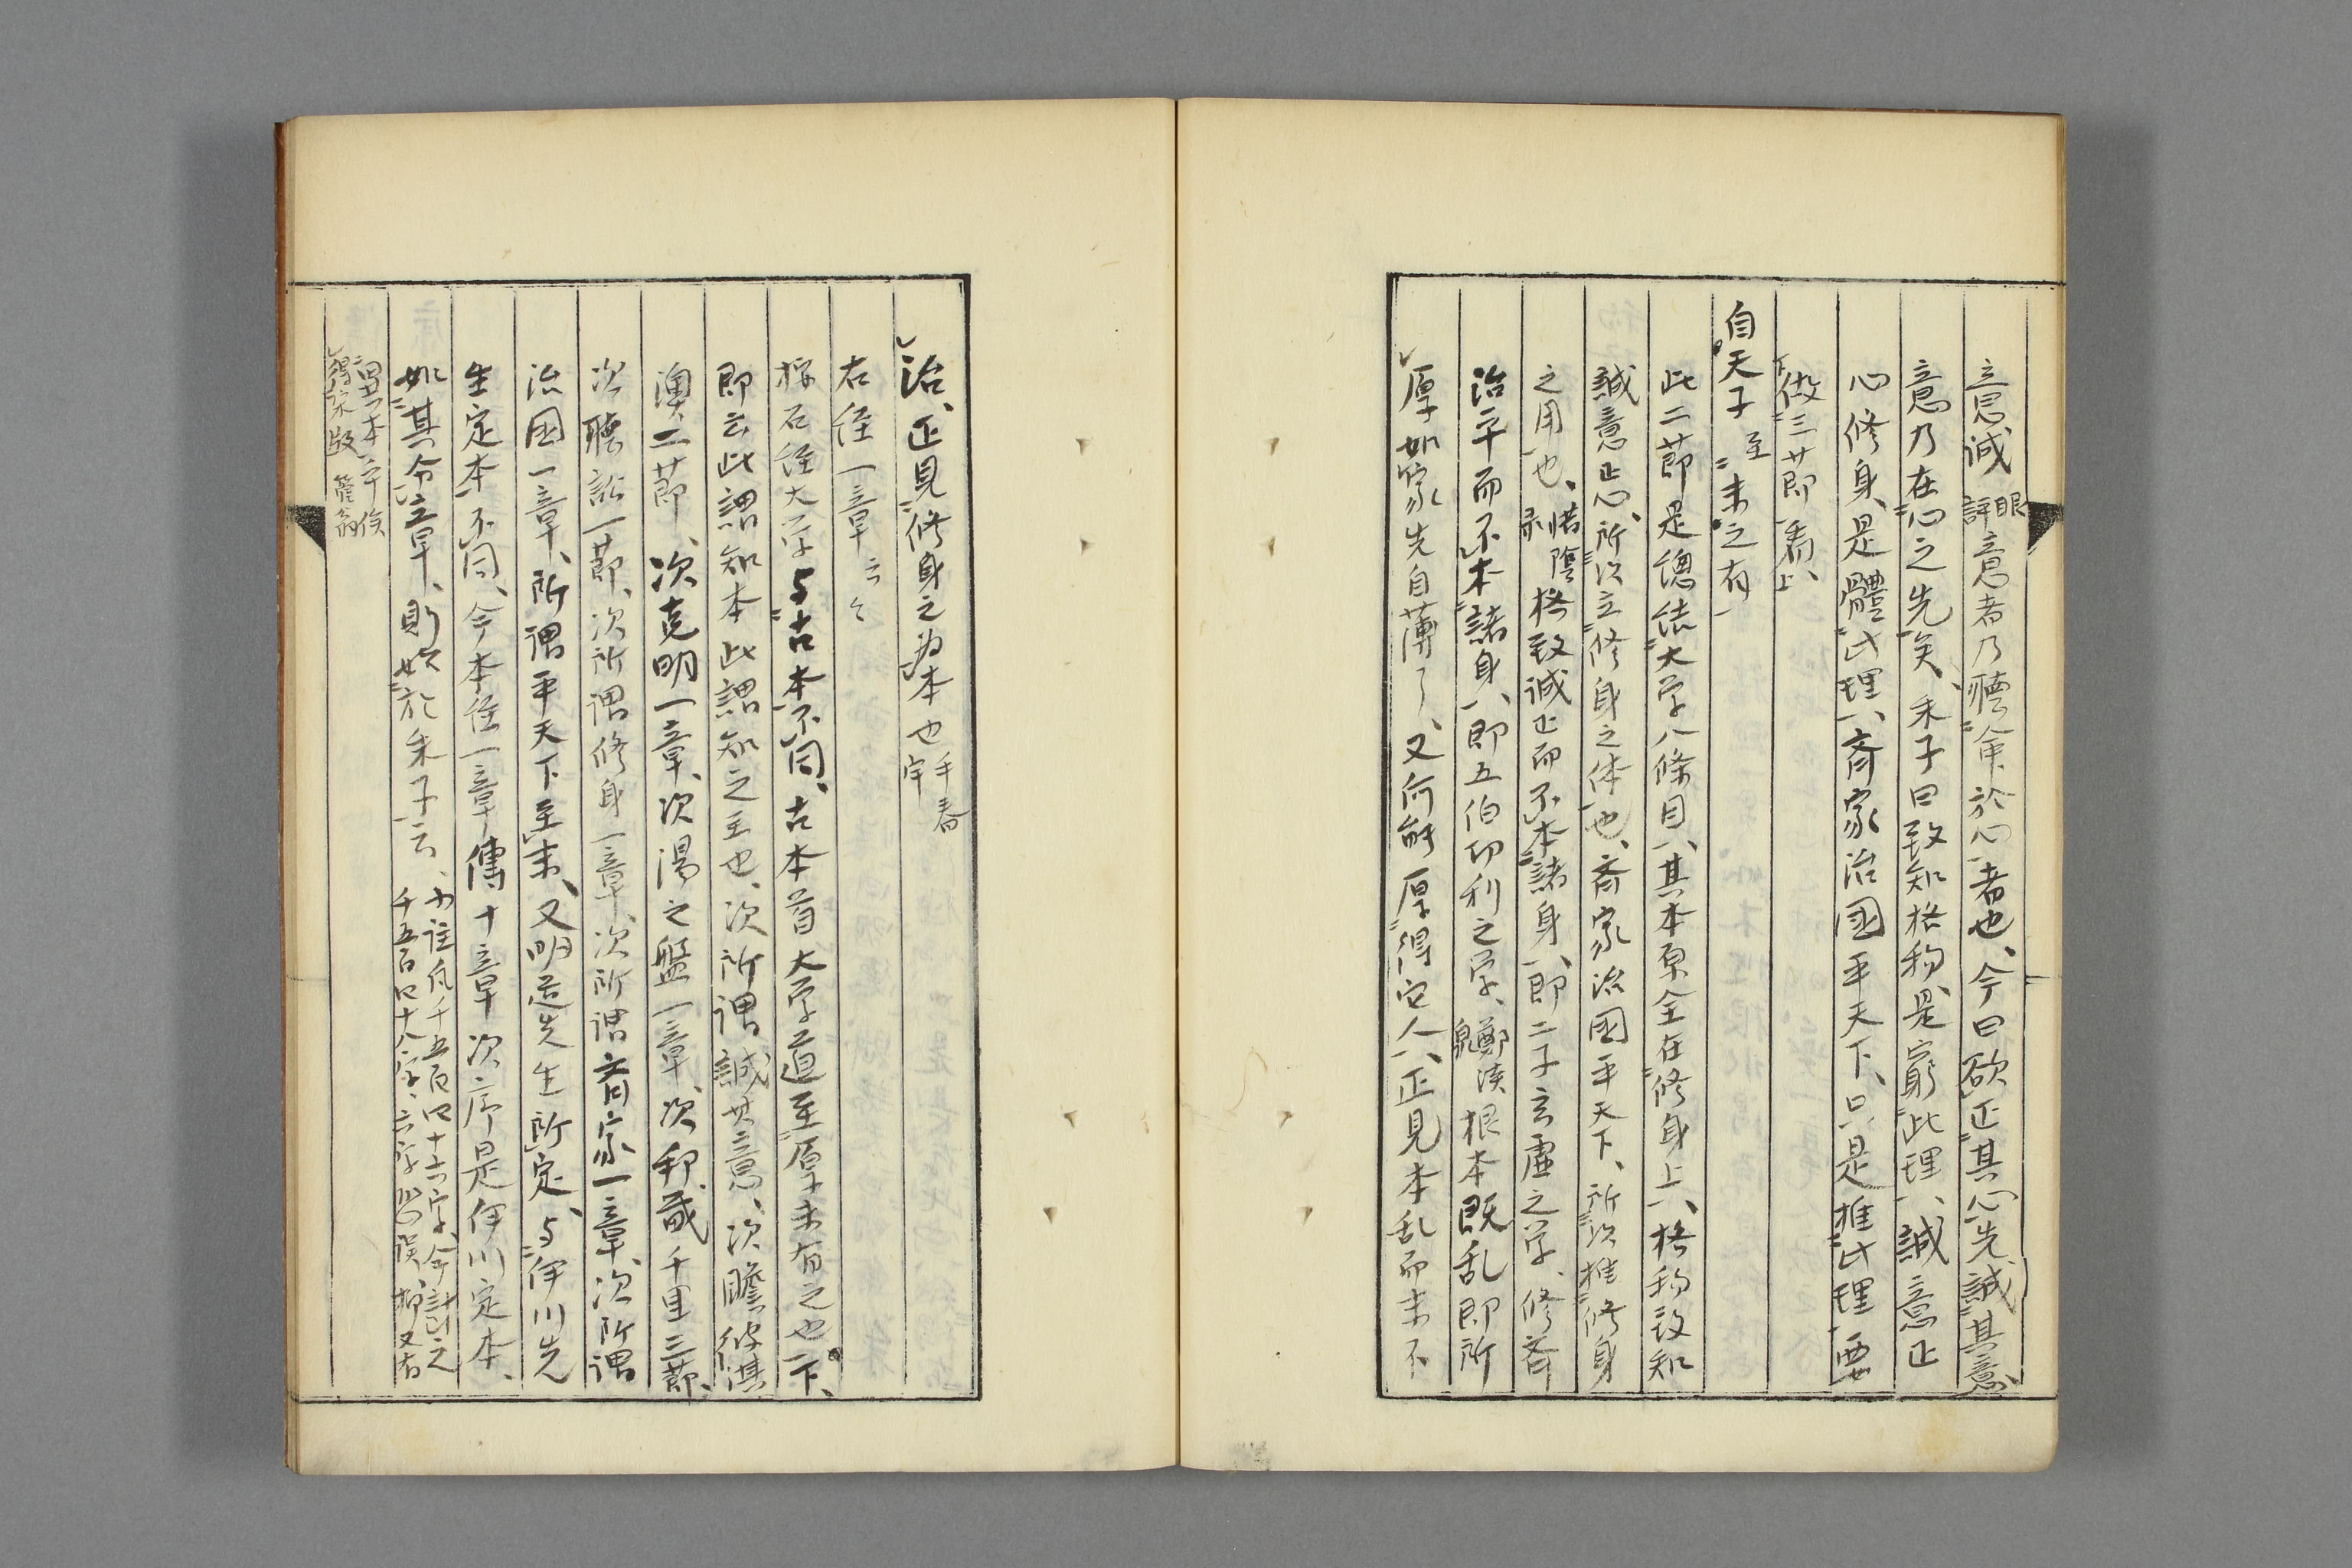 意誠眼評意者乃聽命於心者也、今曰欲正其心先誠其意
意乃在心之先矣、朱子曰致知格物、是窮此理、誠意正
心修身、是體此理、斉家治國平天下、只是推此理要
做三节看上、
自天子至末之有
此二節是總結大学八條目、其本原全在修身上、格物致知
誠意正心、所以立修身之体也、斉家治國平天下、所以推修身
之用也、惜陰録格致誠正而不本諸身、即二子玄虚之学、修斉
治平而不本諸身、即五伯功利之学、鄭湛泉根本既乱即所
厚如家先自薄了、又何能厚得它人、正見本乱而末不
治、正見修身之為本也千春
右経一章云々
按石経大学与古本不同、古本首大学道至厚未有之也下、
即云此謂知本此謂知之至也、次所謂誠其意、次瞻彼淇
澳二節、次克明一章、次湯之盤一章、次邦畿千里三節、
次聽訟一節、次所謂修身一章、次所謂斉家一章、次所謂
治國一章、所謂平天下至末、又明道先生所定、与伊川先
生定本不同、今本経一章傳十章次序是伊川定本、
如其分章、則始於朱子云、小註凡千五百四十六字、今計之
千五百四十八字、六字恐誤